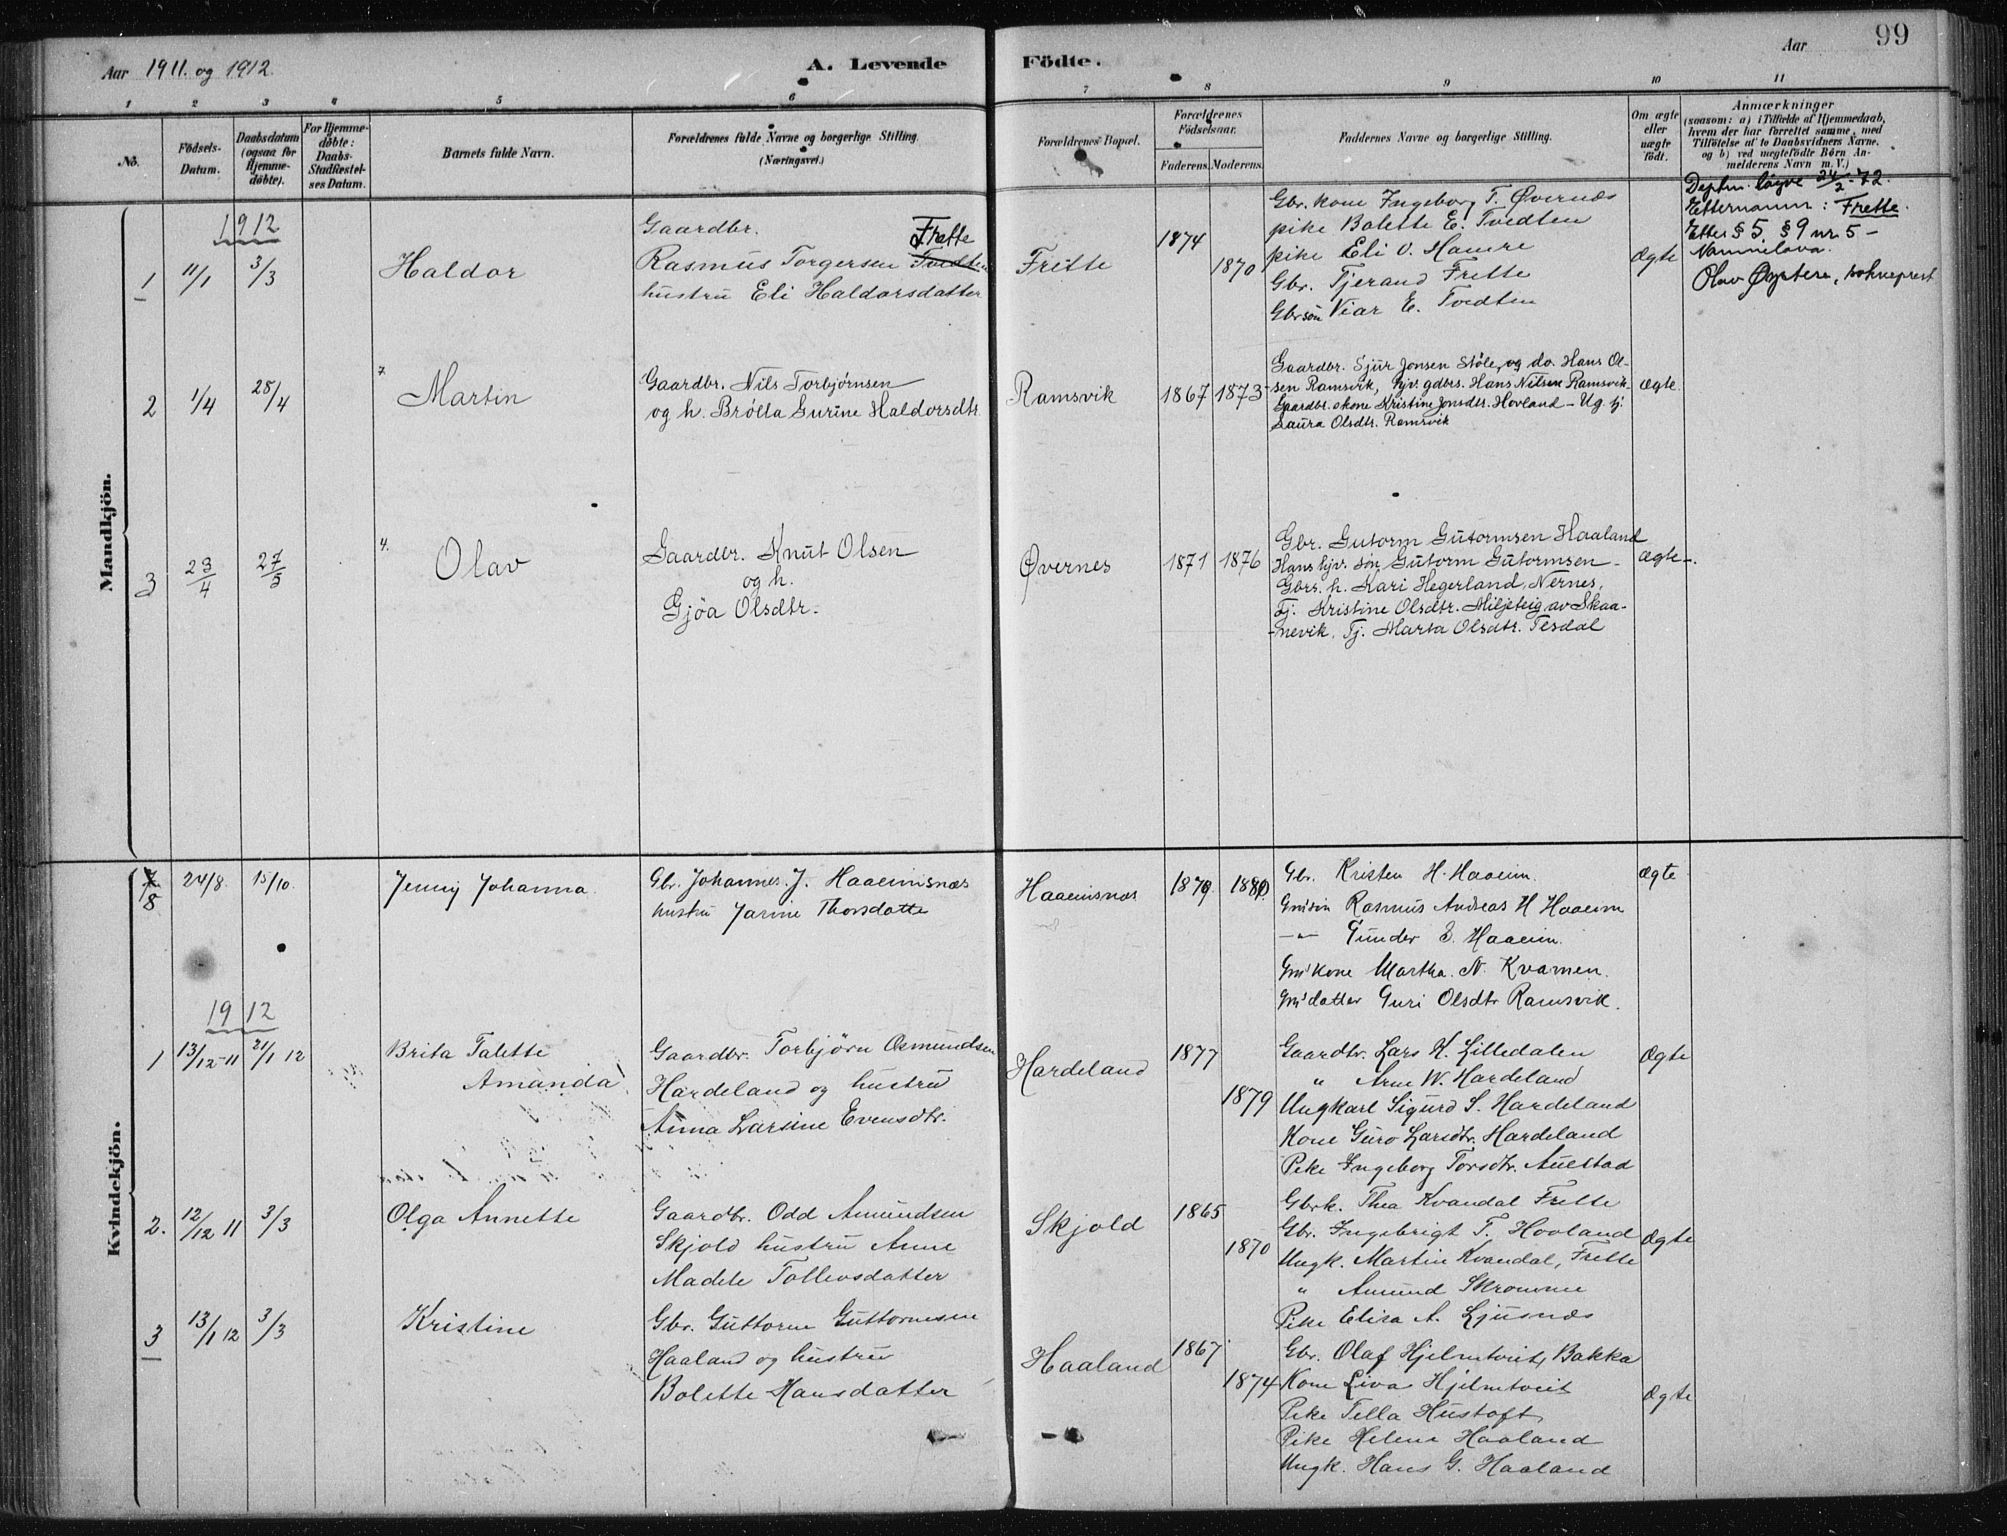 Aar 1911. og 1912. A. Levende Födte. Aar 99
1 2 3 4 5 6 7 8 9 10 11
No.
Födsels-Datum.
Daabsdatum (ogsaa for Hjemme-döbte).
For Hjemme-döbte: Daabs-Stadfæstel-ses Datum.
Barnets fulde Navn.
Forældrenes fulde Navne og borgerlige Stilling. (Næringsvei.)
Forældrenes Bopæl.
Forældrenes Födselsaar.
Faderens. Moderens.
Faddernes Navne og borgerlige Stilling.
Om ægte eller uægte födt.
Anmærkninger
(saasom: a) i Tilfælde af Hjemmedaab,
hvem der har forrettet samme, med
Tilföielse af to Daabsvidners Navne,
og b) ved uægtefödte Börn An-
melderens Navn m. V.)
Mandkjön.
1912
1 11/1 3/3 Haldor
Gaardbr.
Rasmus Torgersen Tvedten Frette
hustru Eli Haldorsdatter
Frette 1874 1870
Gbr. kone Ingeborg T. Øvernæs
pike Bolette E. Tvedten
pike Eli O. Hamre
Gbr. Tjerand Frette
Gbrsön Viar E. Tvedten
Ægte
Deptm. løyve 24/2-72.
Etternamn: Frette.
Etter § 5, § 9 nr 5 -
Namnelova.
Olav Øystese, sokneprest
2 1/4 28/4 7. Martin
Gaardbr. Nils Torbjørnsen
og h. Brølla Gurine Haldorsdtr
Ramsvik 1867 1873
Gaardbr. Sjur Jonsen Støle, og do. Hans Ol-
sen Ramsvik, hjv. gdbrs. Hans Nilsen Ramsvik
Gaardbr.skone Kristine Jonsdtr. Hovland - Ug. tj.
Laura Olsdtr. Ramsvik
Ægte.
3 23/4 27/5 4. Olav
Gaardbr. Knut Olsen
og h.
Gjøa Olsdtr.
Øvernes 1871 1876
Gbr. Gutorm Gutormsen Haaland
Hans hjv. søn Gutorm Gutormsen -
Gbrs. h. Kari Hegerland, Nernes,
Tj. Kristine Olsdtr. Miljeteig av Skaa-
-nevik, Tj. Marta Olsdtr. Tesdal
Ægte-.
Kvindekjön.
8 24/8. 15/10. Jenny Johanna.
Gbr. Johannes. J. Haaeimsnæs
hustru Jarine Thorsdatte
Haaeimsnæs 1879 1880
Gbr. Kristen H. Haaeim.
Grdsön Rasmus Andreas H Haaeim
-"- Gunder E. Haaeim.
Grd kone Martha. N. Kvamen.
Grd datter Guri Olsdtr Ramsvik.
Ægte
1912
1 13/12-11 21/1 12 Brita Talette
Amanda
Gaardbr. Torbjørn Osmundsen
Hardeland og hustru
Anna Larsine Evensdtr.
Hardeland 1877 1879
Gaardbr. Lars K. Lilledalen
" Arne W. Hardeland
Ungkarl Sigurd S. Hardeland
Kone Guro Larsdtr. Hardeland
Pike Ingeborg Torsdtr. Auestad
Ægte
2. 12/12 11 3/3 Olga Annette
Gaardbr. Odd Amundsen
Skjold hustru Anne
Madele Tollevsdatter
Skjold 1865 1870
Gbrk. Thea Kvandal Frette
Gbr. Ingebrigt T. Hovland
Ungk. Martin Kvandal, Frette
" Amund Skromme
Pike Elisa A. Ljusnæs
Ægte
3 13/1 12 3/3 Kristine
Gbr. Guttorm Guttormsen
Haaland og hustru
Bolette Hansdatter
Haaland 1867 1874
Gbr. Olaf Hjelmtveit, Bakka
Kone Liva Hjelmtveit
Pike Tella Hustoft
Pike Helene Haaland
Ungk. Hans G. Haaland
Ægte